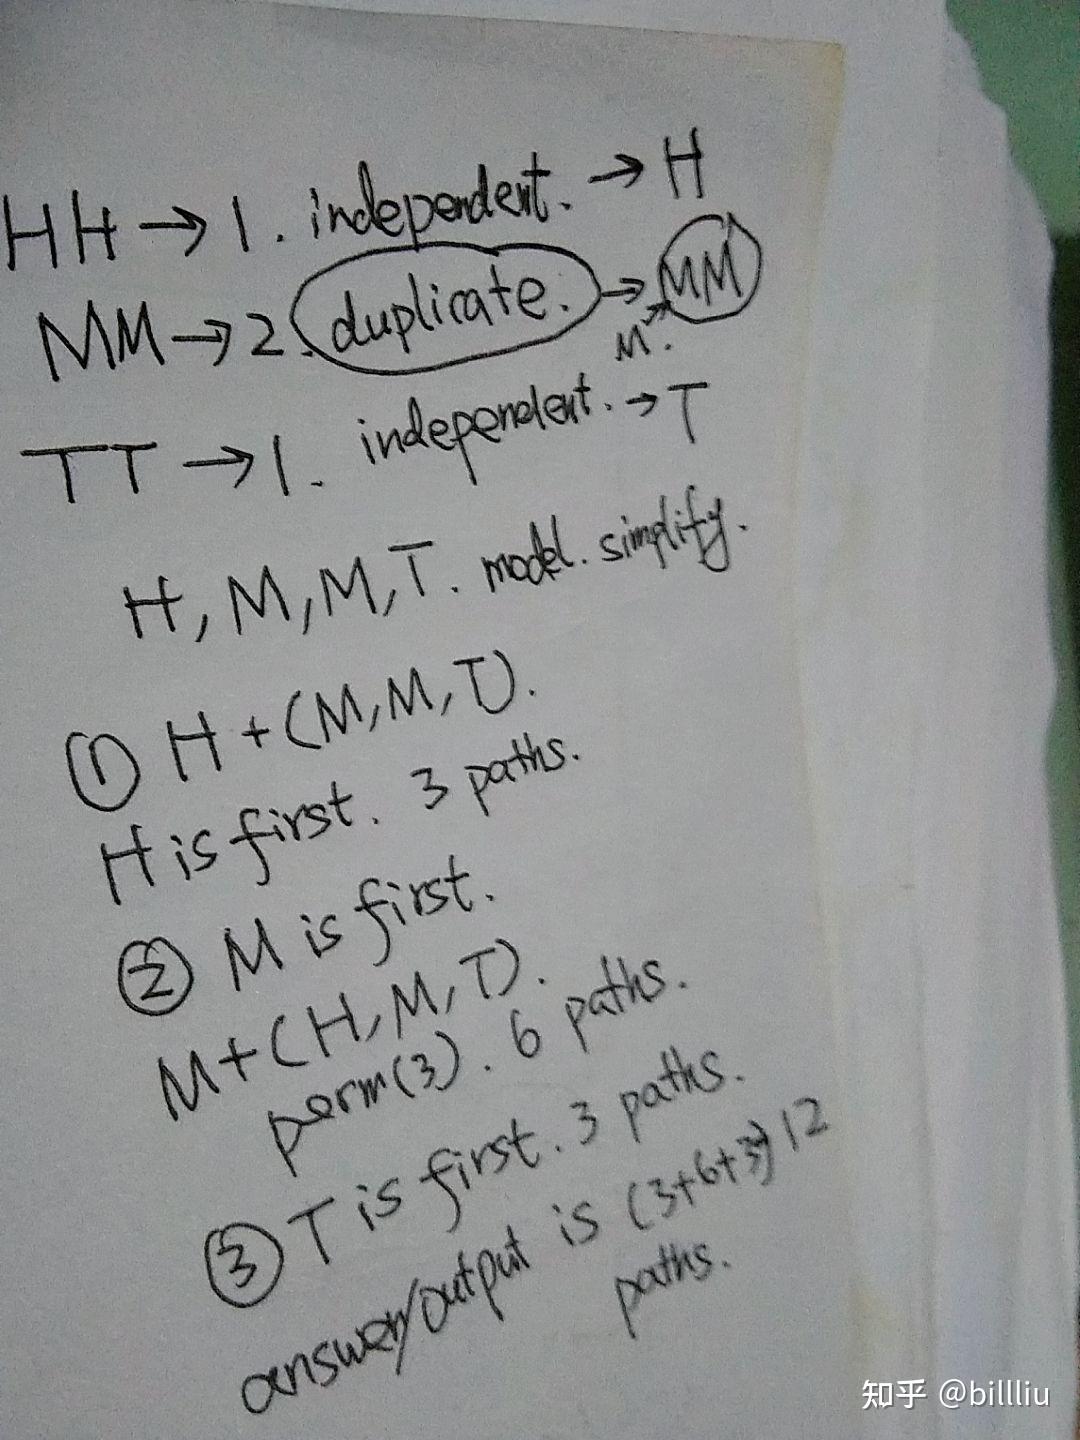 HH → 1. independent. → H
MM → 2. duplicate. → MM
M.
TT → 1. independent. → T
H, M, M, T. model. simplify.
① H + (M, M, T).
H is first. 3 paths.
② M is first.
M + (H, M, T).
perm(3). 6 paths.
③ T is first. 3 paths.
answer/output is (3+6+3) 12
paths.
知乎 @billliu